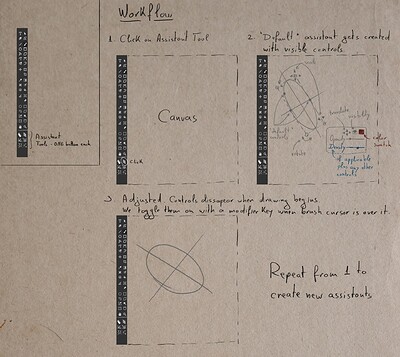 Workflow
1. Click on Assistant Tool
2. "Default" assistant gets created
with visible controls.
Assistant
Tools - one button each
Canvas
Click
"Default"
translate
visibility
rotate
color
swatch
if applicable
plus any other
controls
3. Adjusted Controls dissapear when drawing begins.
We toggle them on with a modifier key when brush cursor is over it.
Repeat from 1 to
create new assistants